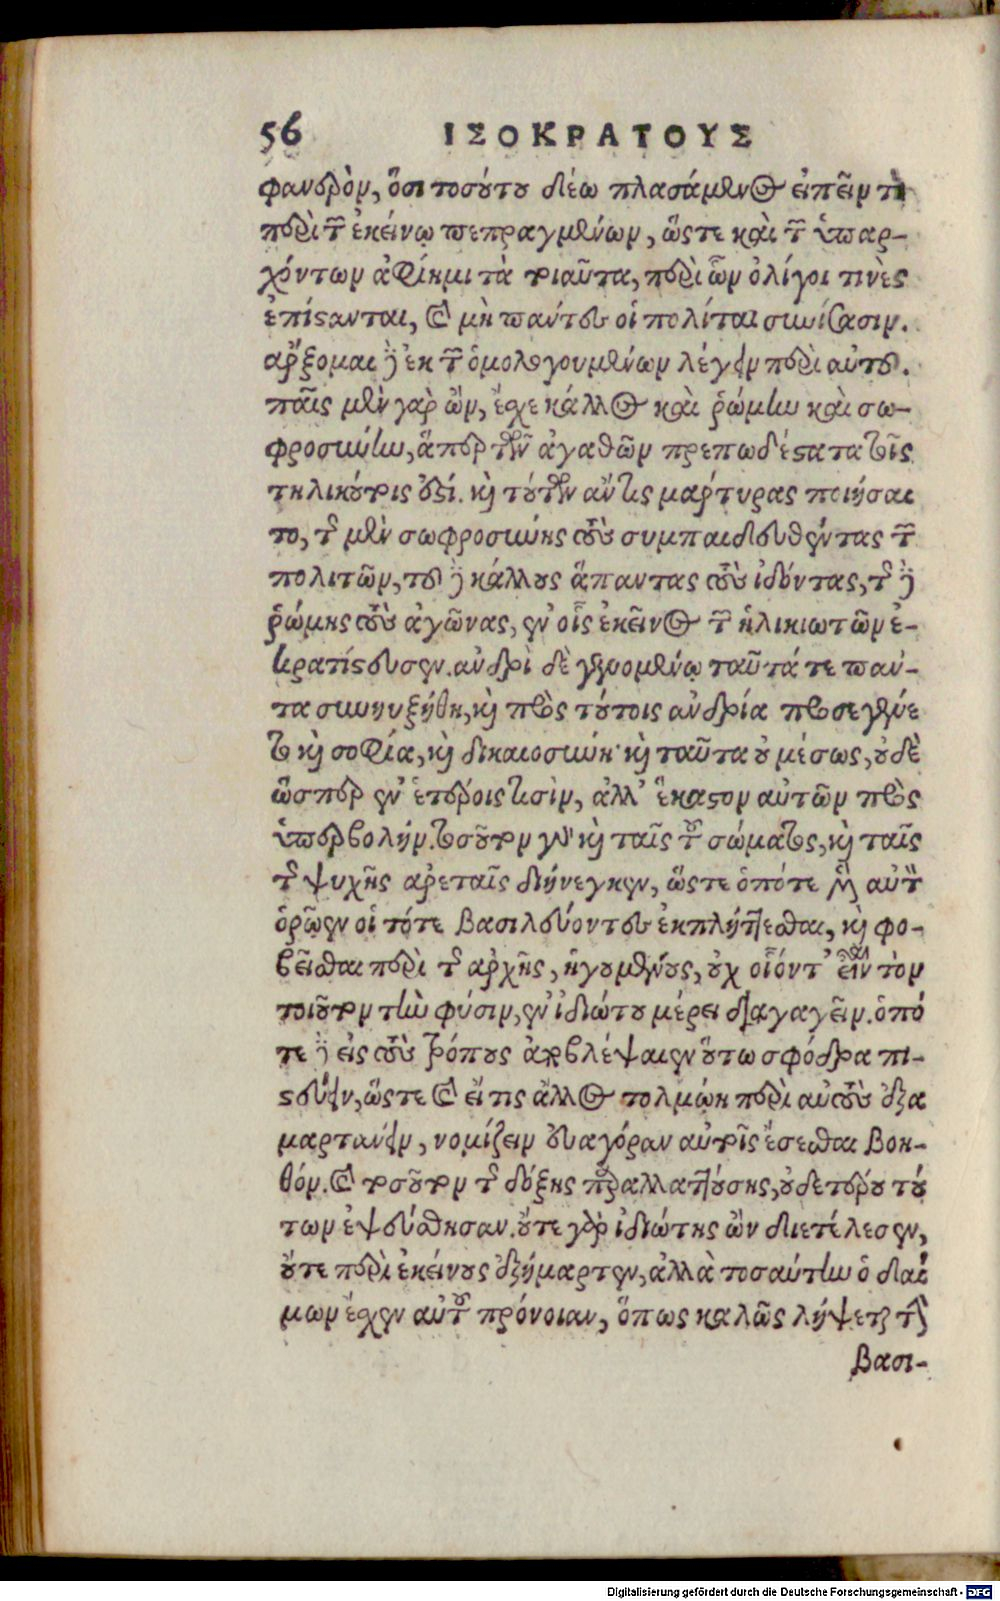 56 ΙΣΟΚΡΑΤΟΥΣ
φανερὸν, ὅτι τοσούτου δέω πλασάμενος εἰπεῖν τὶ
περὶ τῶν ἐκείνῳ πεπραγμένων, ὥστε καὶ τῶν ὑπαρ-
χόντων ἀφίημι τὰ τοιαῦτα, περὶ ὧν ὀλίγοι τινὲς
ἐπίστανται, καὶ μὴ πάντες οἱ πολῖται συνίσασιν.
ἄρξομαι δ' ἐκ τῶν ὁμολογουμένων λέγειν περὶ αὐτοῦ.
παῖς μὲν γὰρ ὢν, ἔσχε κάλλος καὶ ῥώμην καὶ σω-
φροσύνην, ἅπερ τῶν ἀγαθῶν πρεπωδέστατα τοῖς
τηλικούτοις ἐστί. καὶ τούτων ἄν τις μάρτυρας ποιήσαι
το, τῆς μὲν σωφροσύνης τοὺς συμπαιδευθέντας τῶν
πολιτῶν, τοῦ δὲ κάλλους ἅπαντας τοὺς ἰδόντας, τῆς δὲ
ῥώμης τοὺς ἀγῶνας, ἐν οἷς ἐκεῖνος τῶν ἡλικιωτῶν ἐ-
κρατίστευσεν. ἀνδρὶ δὲ γενομένῳ ταῦτά τε πάν-
τα συνηυξήθη, καὶ πρὸς τούτοις ἀνδρία προσεγένε
το καὶ σοφία, καὶ δικαιοσύνη· καὶ ταῦτα οὐ μέσως, οὐδὲ
ὥσπερ ἐν ἑτέροις τισὶν, ἀλλ' ἕκαστον αὐτῶν πρὸς
ὑπερβολήν. τοσοῦτον γὰρ καὶ ταῖς τοῦ σώματος, καὶ ταῖς
τῆς ψυχῆς ἀρεταῖς διήνεγκεν, ὥστε ὁπότε μὲν αὐτὸν
ὁρῷεν οἱ τότε βασιλεύοντες ἐκπλήττεσθαι, καὶ φο-
βεῖσθαι περὶ τῆς ἀρχῆς, ἡγουμένους, οὐχ οἷόντ' εἶναι τὸν
τοιοῦτον τὴν φύσιν, ἐν ἰδιώτου μέρει διαγαγεῖν. ὁπό
τε δ' εἰς τοὺς τρόπους ἀποβλέψαιεν οὕτω σφόδρα πι-
στεύειν, ὥστε καὶ εἴ τις ἄλλος τολμῴη περὶ αὐτοὺς ἐξα
μαρτάνειν, νομίζειν Εὐαγόραν αὐτοῖς ἔσεσθαι βοη-
θόν. καὶ τοσοῦτον τῆς δόξης παραλλαττούσης, οὐδετέρου τού
των ἐψεύσθησαν. οὔτε γὰρ ἰδιώτης ὢν διετέλεσεν,
οὔτε περὶ ἐκείνους ἐξήμαρτεν, ἀλλὰ τοσαύτην ὁ δαί
μων ἔσχεν αὐτοῦ πρόνοιαν, ὅπως καλῶς λήψεται τὴν
βασι-
Digitalisierung gefördert durch die Deutsche Forschungsgemeinschaft - DFG